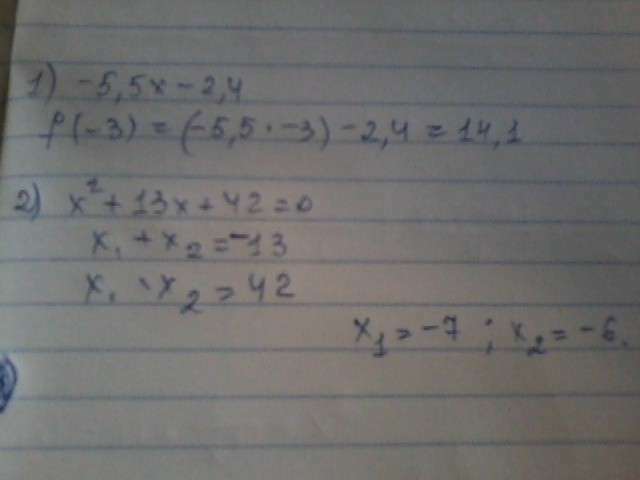 1) -5,5x - 2,4
f(-3) = (-5,5 · -3) - 2,4 = 14,1
2) x² + 13x + 42 = 0
x₁ + x₂ = -13
x₁ · x₂ = 42
x₁ = -7 ; x₂ = -6.